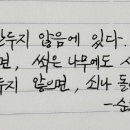 만두지 않음에 있다.
면, 썩은 나무에도 시
두지 않으면, 쇠나 돌
-순